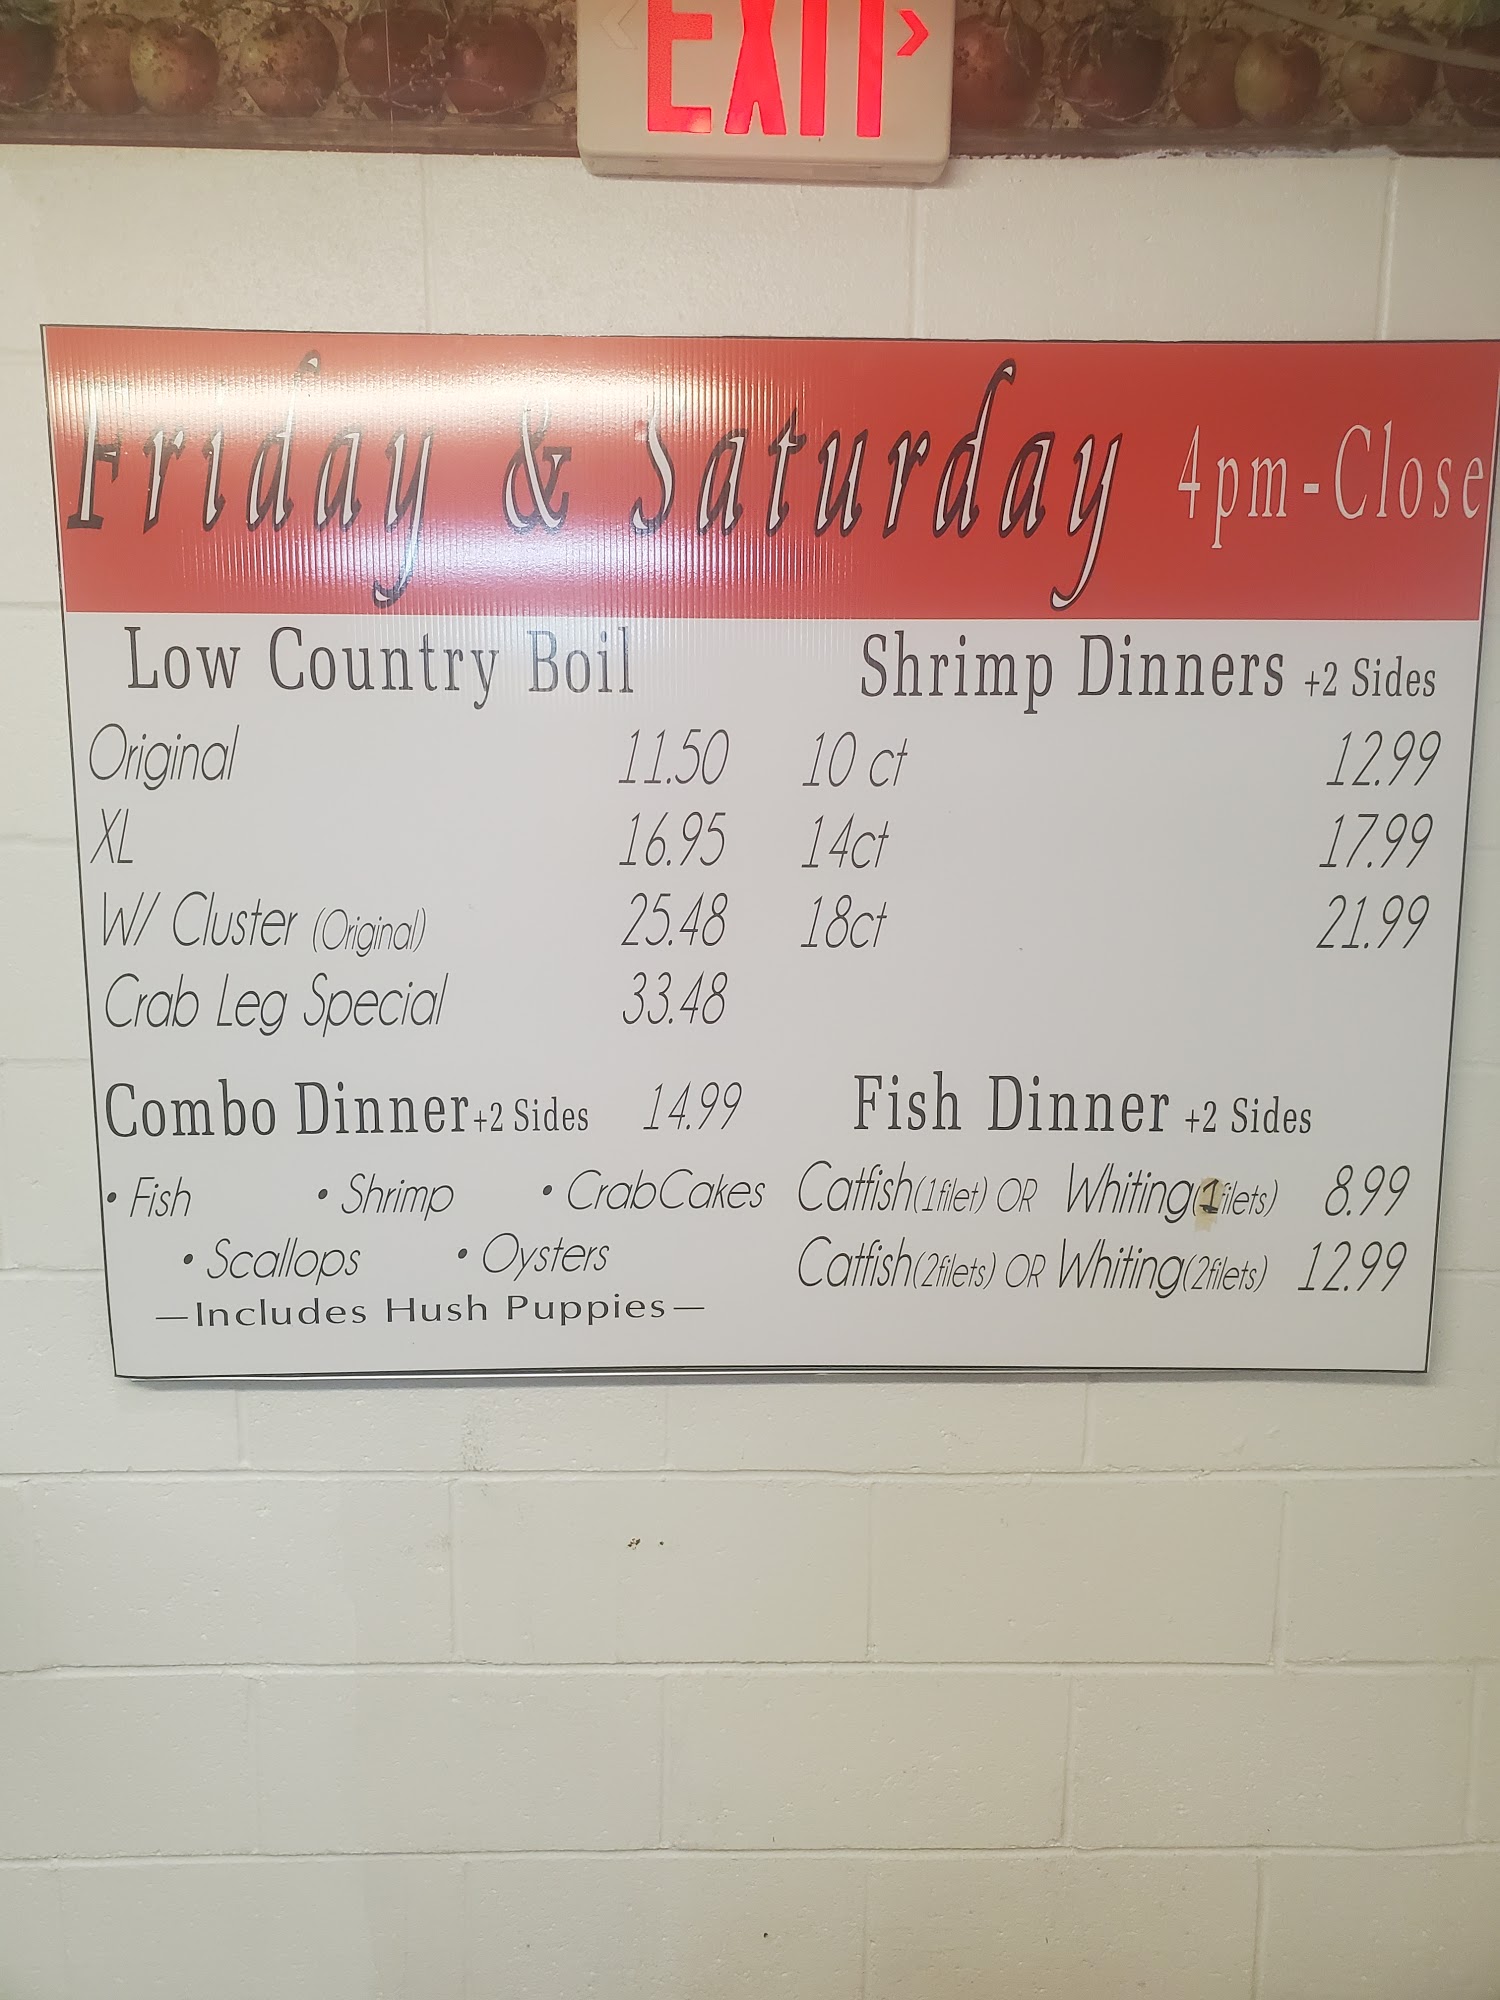 EXIT
Friday & Saturday 4pm-Close
Low Country Boil
Original 11.50
XL 16.95
W/ Cluster (Original) 25.48
Crab Leg Special 33.48
Shrimp Dinners +2 Sides
10 ct 12.99
14ct 17.99
18ct 21.99
Combo Dinner +2 Sides 14.99
• Fish • Shrimp • CrabCakes
• Scallops • Oysters
—Includes Hush Puppies—
Fish Dinner +2 Sides
Catfish(1filet) OR Whiting(1filets) 8.99
Catfish(2filets) OR Whiting(2filets) 12.99